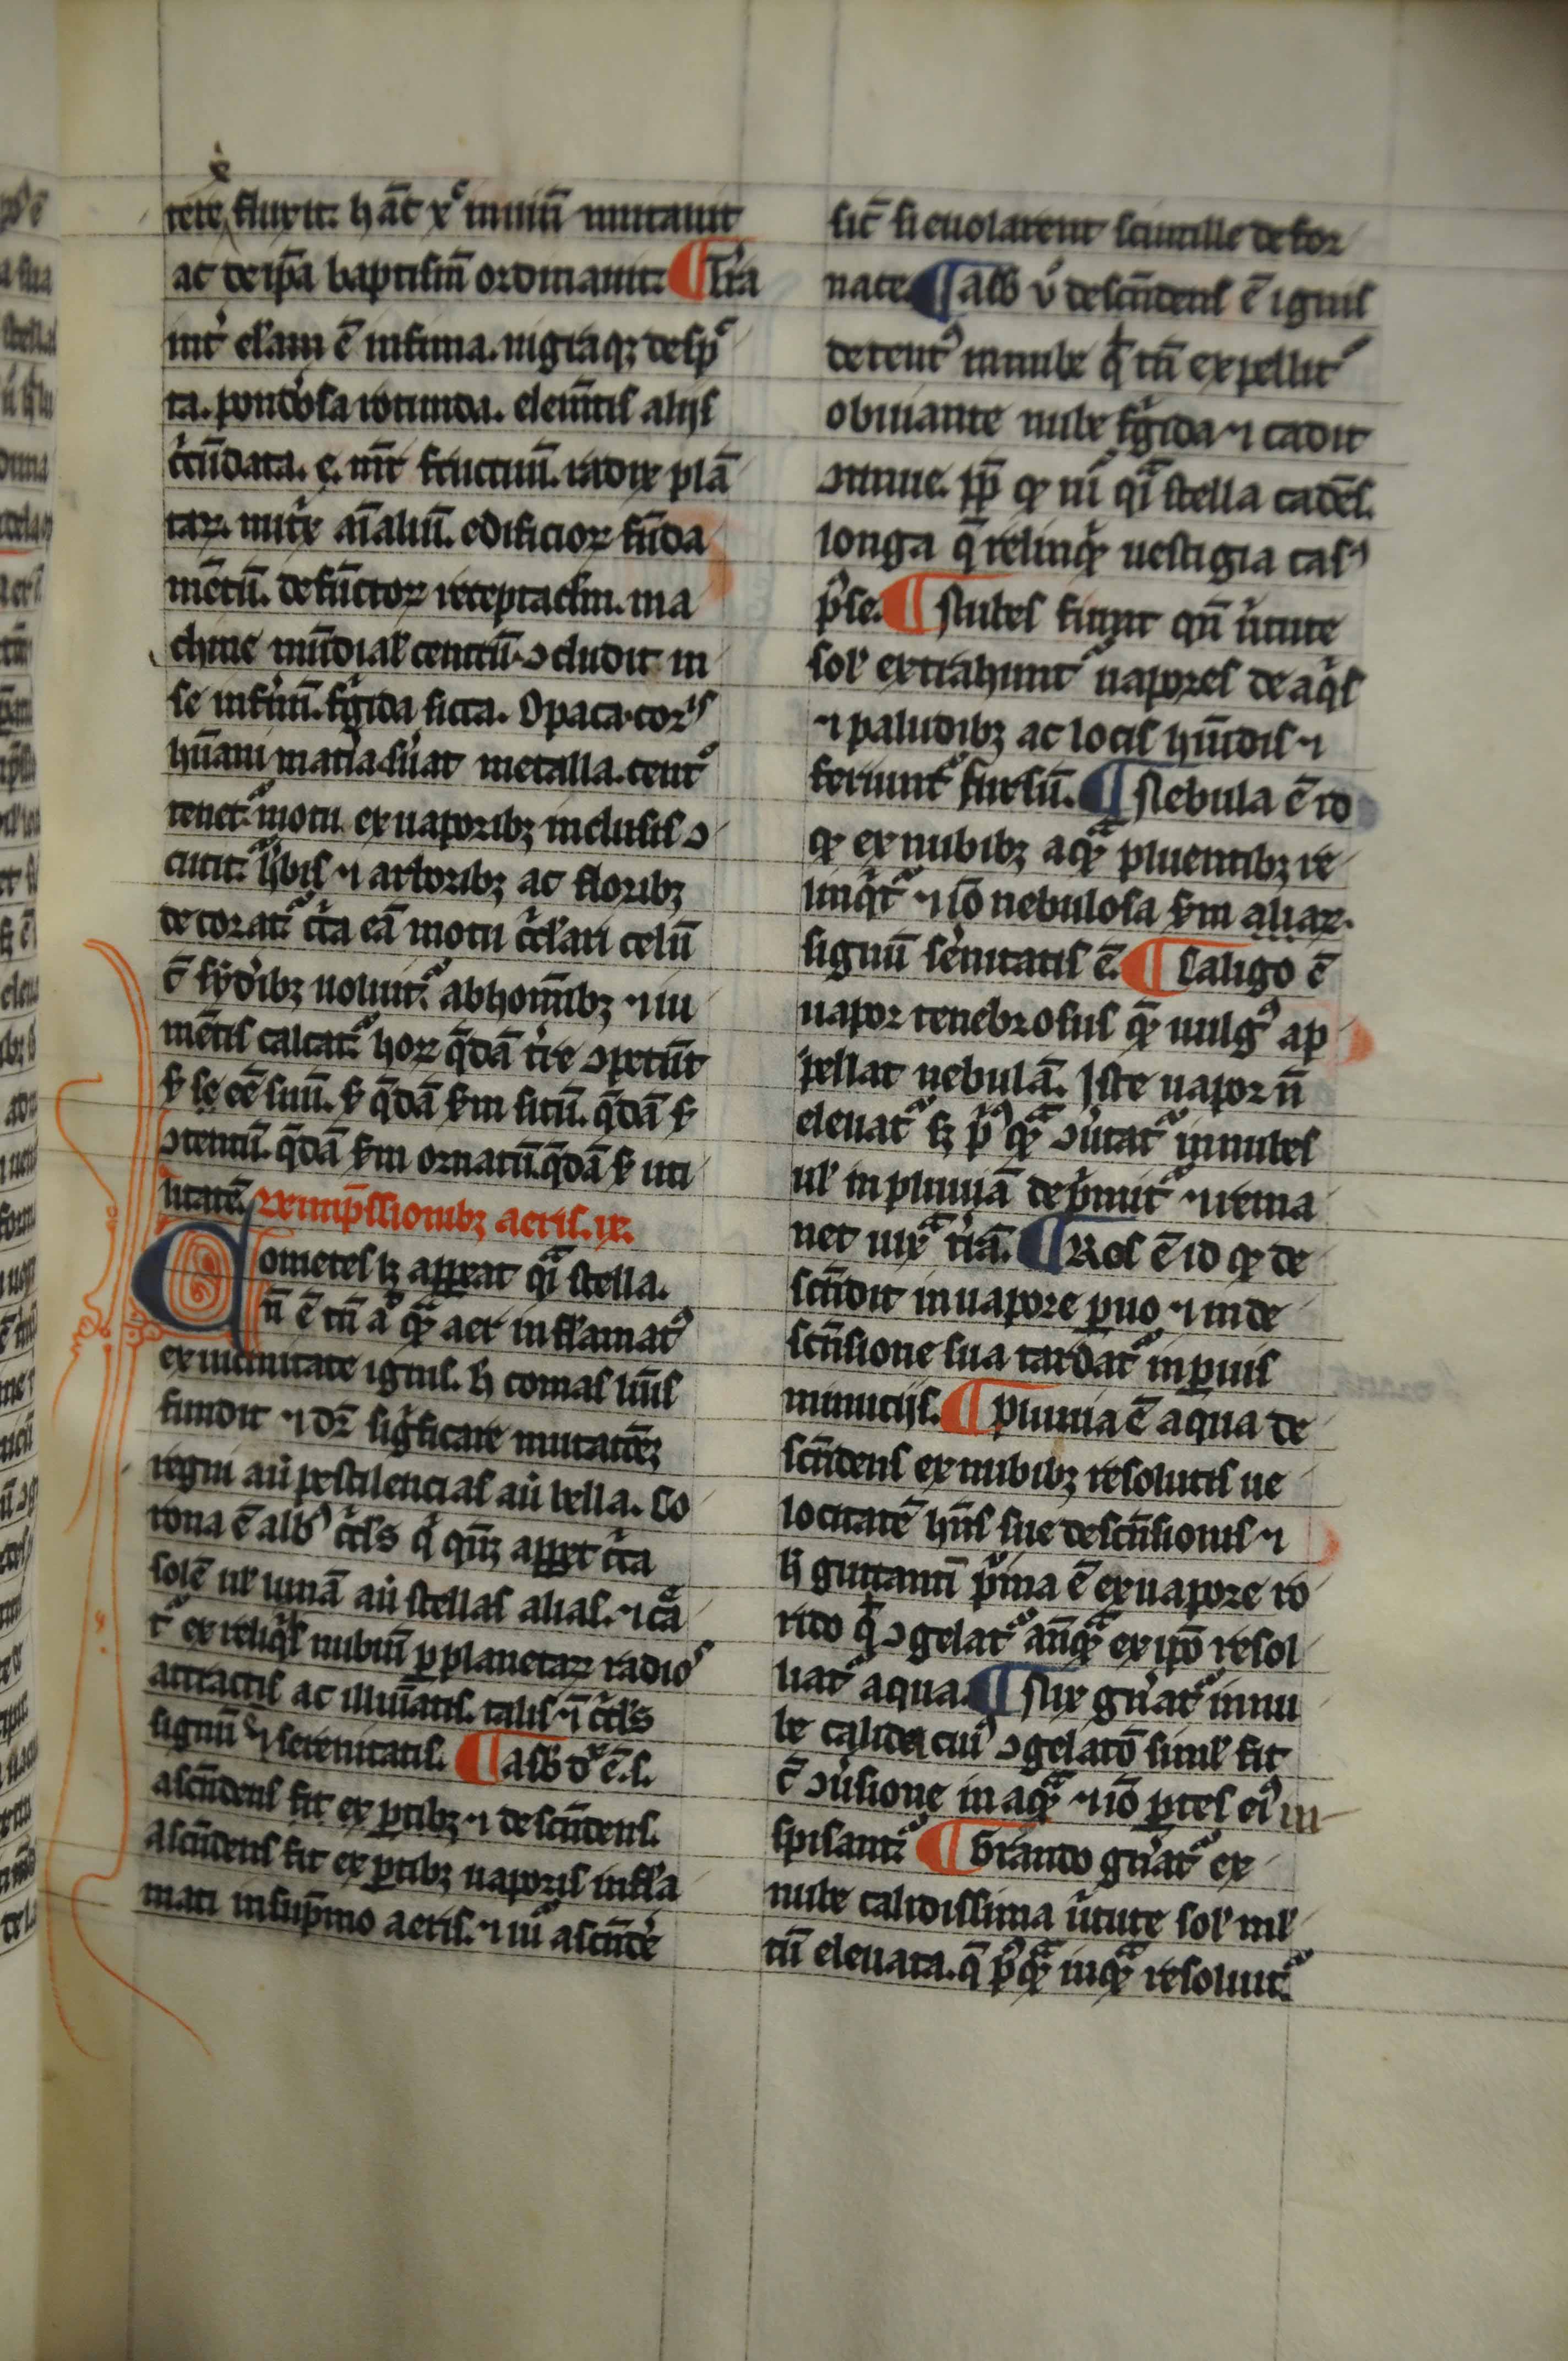 tere fluxit. hāc xͨ in uinū mutauit
ac de ip̄a baptismū ordinauit. ¶ Tr̄a
int̉ elīam ē infima. nigraqꝫ desp̄
ta. pondōsa rotunda. elem̄tis alijs
cc̉ūdata. ę. mr̄ fructuū. radix plā
taꝝ. nut̉x aīaliū. edificioꝝ fūda
mētū. defūctoꝝ receptaclm. ma
chine mūdial᷑ centrū. ↄcludit in
se infnū. fg̉ida sicca. Opaca. corꝑis
hūani matīa. sūat metalla. cent᷑
tenet᷑. motu ex uaporibꝫ inclusis ↄ
cutit᷑. hb̉is ⁊ arboribꝫ ac floribꝫ
decorat᷑. cc̉a eā motu cc̉lari celū
c̄ sydībꝫ uoluit᷑. ab homībꝫ ⁊ iu
mētis calcat᷑. hoꝝ q̄dā tr̄e ↄpetūt
ẜ se eē suū. ẜ q̄dā ẜm sitū. q̄dā ẜ
ↄtentū. q̄dā ẜm ornatū. q̄dā ẜ uti
litatē. De imp̄ssionibꝫ aeris. ix.
Cometes lꝫ appeat q̉ͣ stella.
n̄ ē tn̄ aͦ qͣꝫ aer inflamatꝰ
ex uicinitate ignis. h̄ comas lūis
fundit ⁊ dr̄ sig̉ficare mutatōeꝫ
regni aū pestilencias aū bella. Co
rona ē albꝰ cc̉ls q̉ qn̄qꝫ appet cc̉a
solē ul᷑ lunā aū stellas alias. ⁊ cā
t᷑ ex reliq̉s nubiū ꝑ planetaꝝ radioˢ
attractis ac illuīatis. talis ⁊ cc̉ls
signū ē serenitatis. ¶ Asb dͬ ē. s.
ascn̄dens fit ex ꝑtibꝫ ⁊ descn̄dens.
ascn̄dens fit ex ꝑtibꝫ uaporis infla
mati in sup̄mo aeris. ⁊ iū ascn̄de
sic̄ si euolarent scintille de for
nace. ¶ Asb ū descn̄dens ē ignis
detentꝰ in nube q̉ tn̄ expellit᷑
obuiante nube fg̉ida ⁊ cadit
ↄtinue. pp̄ qꝫ uī q̉ͣ stella cadēs.
longa q̄ relinq̉ꝫ uestigia casꝰ
p̄ se. ¶ Nubes fiunt qn̄ ūtute
sol᷑ extrahunt᷑ uapores de aq̉s
⁊ paludibꝫ ac locis hūidis ⁊
feriunt᷑ sursū. ¶ Nebula ē id
qꝫ ex nubibꝫ aqͣꝫ pluentibꝫ re
linq̉t᷑ ⁊ iō nebulosa ẜm aliaꝝ.
signū sēnitatis ē. ¶ Caligo ē
uapor tenebrosus qͣꝫ uulgꝰ ap
pellat nebulā. Iste uapor n̄
eleuat᷑ sꝫ p̄ꝰ qͣꝫ ↄūtat᷑ in nubes
ul᷑ in pluuiā dep̉mit᷑ ⁊ rema
net iuxͣ tr̄ā. ¶ Ros ē id qꝫ de
scn̄dit in uapore ꝑuo ⁊ in de
scn̄sione sua tardat᷑ in ꝑuis
minucijs. ¶ Pluuia ē aqua de
scn̄dens ex nubibꝫ resolutis ue
locitatē hn̄s sue descn̄sionis ⁊
h̄ guttantī p̉ma ē ex uapore ro
rido q̉ ↄgelat᷑ an̄qͣꝫ ex ip̄o resol
uat᷑ aqua. ¶ Nix gn̄at᷑ in nu
be calida cuiꝰ ↄgelatō simul᷑ fit
c̄ ↄūsione in aqͣꝫ ⁊ iō ꝑtes eiꝰ in
spisant᷑. ¶ Grando gn̄at᷑ ex
nube calidissima ūtute sol᷑ ml᷑
tū eleuata. q̄ p̄ꝰqͣꝫ in aqͣꝫ resoluit᷑.